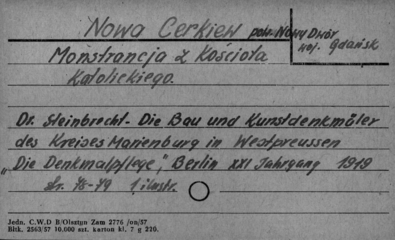 Nowa Cerkiew pow. Nowy Dwór
woj. Gdańsk
Monstrancja z Kościoła
Katolickiego.
Dr. Steinbrecht - Die Bau und Kunstdenkmäler
des Kreises Marienburg in Westpreussen
„Die Denkmalpflege", Berlin XXI Jahrgang 1919
Str. 48-49 1 ilustr.
Jedn. C.W.D B/Olsztyn Zam 2776 /on/57
Bltk. 2563/57 10.000 szt. karton kl. 7 g 220.